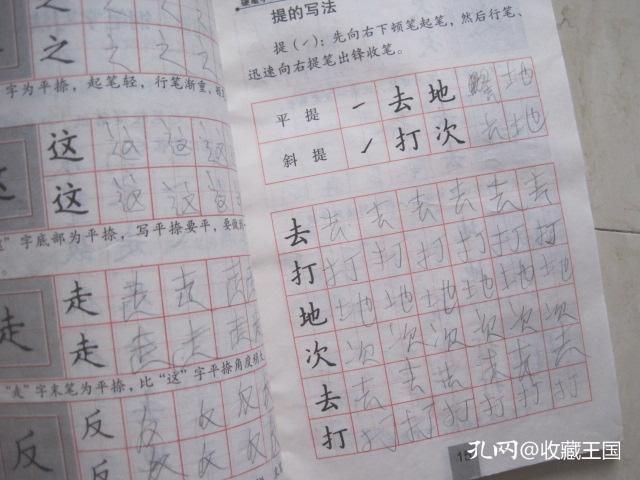 之
字为平捺，起笔轻，行笔渐重，
这
这
字底部为平捺，写平捺要平，要做
走
走
"走"字末笔为平捺，比"这"字平捺角度
反
反
反
提的写法
提（㇀）：先向右下顿笔起笔，然后行笔、
迅速向右提笔出锋收笔。
平 提 ㇀ 去 地 地
斜 提 ㇀ 打 次 去 地
去 去 去 去 去 去 去
打 打 打 打 打 打 打
地 地 地 地 地 地 地
次 次 次 次 次 次 次
去 去 去 去 去 去 去
打 打 打 打 打 打 打
孔网@收藏王国